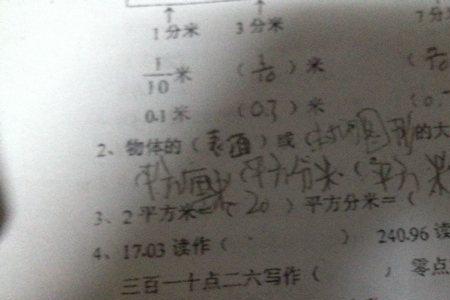 1分米 3分米 7分
1/10 米 (3/10)米 (
0.1 米 (0.3)米 (0.
2、物体的(表面)或(图形)的大
(平方厘米 (平方分米 (平方米
3、2平方米=(20)平方分米=(
4、17.03 读作( ) 240.96 读
三百一十点二六写作( ) 零点